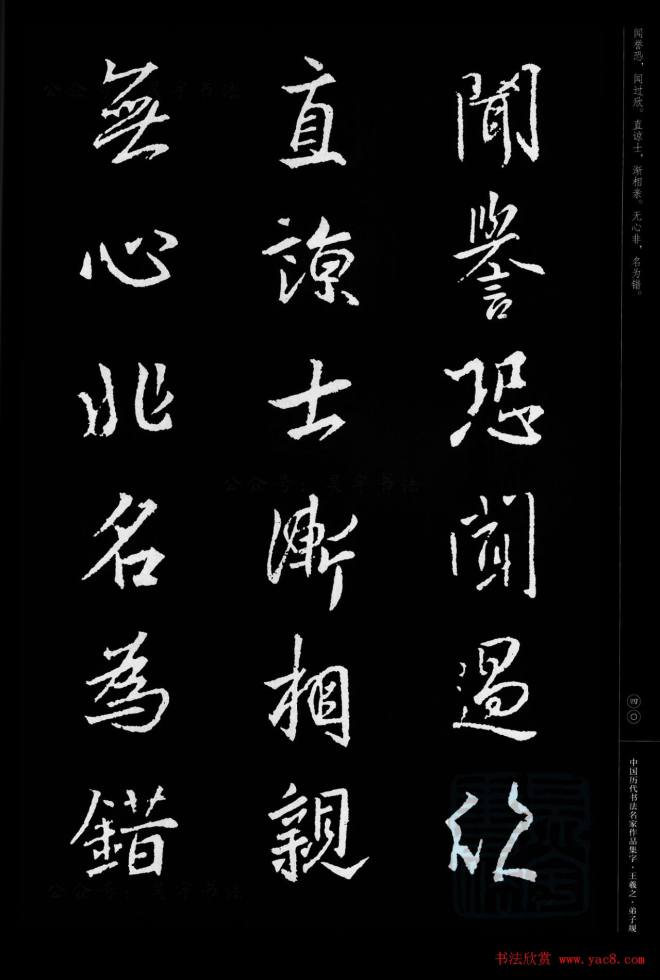 聞譽恐聞過欣
直諒士漸相親
無心非名為錯
闻誉恐，闻过欣。直谅士，渐相亲。无心非，名为错。
四〇
中国历代书法名家作品集字·王羲之·弟子规
书法欣赏 www.yac8.com